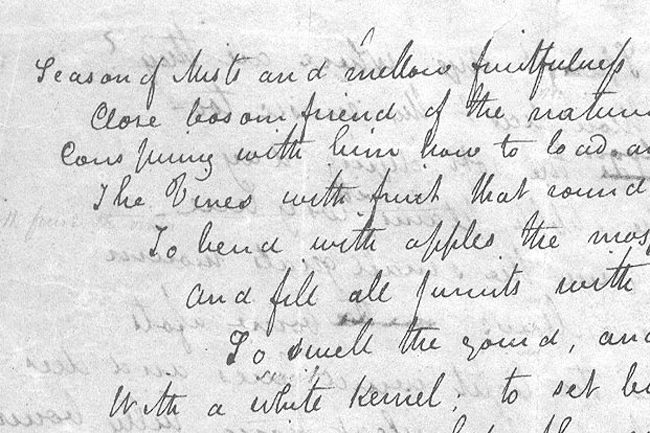 Season of Mists and mellow fruitfulness
Close bosom friend of the natur
Conspiring with him how to load a
The Vines with fruit that round
To bend with apples the mos
And fill all furuits with
To swell the gourd, and
With a white kernel; to set bu